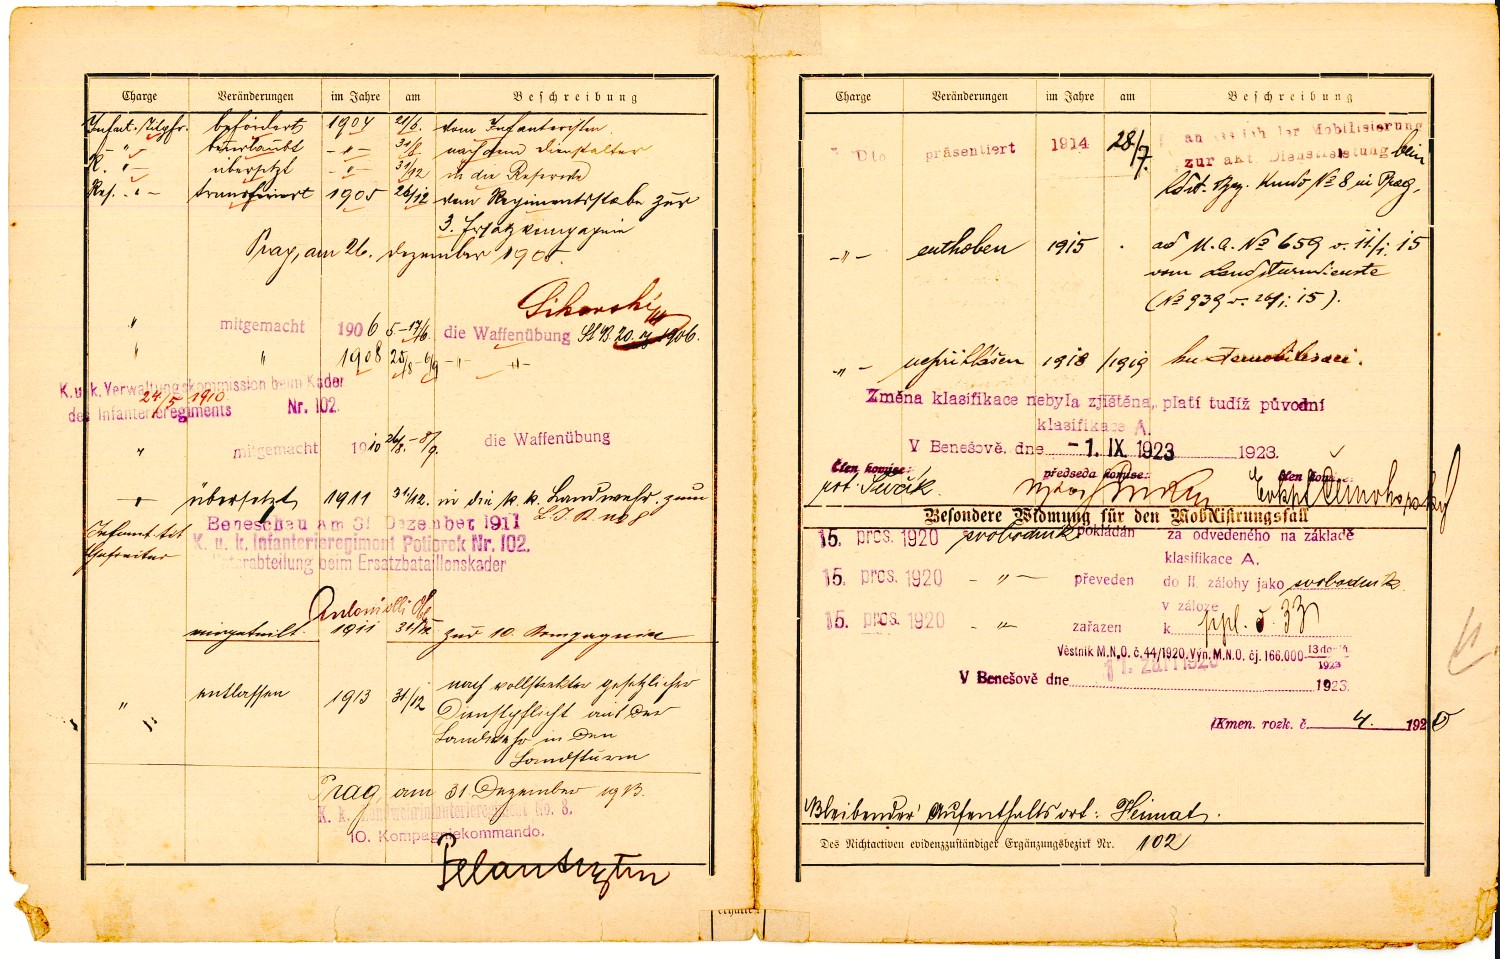 Charge Veränderungen im Jahre am Beschreibung
befördert 1904 21/6. vom Infanteristen
beurlaubt - " - nach dem Dienstalter
R. " übersetzt - " - 31/12 in die Reserve
Res. - " - transferiert 1905 26/12 vom Regimentsstabe zur
3. Ersatzkompagnie
Prag, am 26. Dezember 1905.
" mitgemacht 1906 5-17/6. die Waffenübung 1906.
" " 1908 25/8 - 6/9 - " - - " -
K. u. k. Verwaltungskommission beim Kader
24/5 1910
des Infanterieregiments Nr. 102.
" mitgemacht 1910 26/8. - 8/9. die Waffenübung
- " - übersetzt 1911 31/12. in die k. k. Landwehr, zum
L. I. R. No 8
Beneschau am 31 Dezember 1911
Infant. tit
Gefreiter
K. u. k. Infanterieregiment Potiorek Nr. 102.
Unterabteilung beim Ersatzbataillonskader
eingeteilt 1911 31/12 zur 10. Kompagnie
" entlassen 1913 31/12 nach vollstreckter gesetzlicher
Dienstpflicht aus der
Landwehr in den
Landsturm
Prag am 31 Dezember 1913.
K. k. Landwehrinfanterieregiment No. 8.
10. Kompagniekommando.
Charge Veränderungen im Jahre am Beschreibung
Dto präsentiert 1914 28/7. der Mobilisierung
zur akt. Dienstleistung beim
No 8 in Prag.
- " - enthoben 1915 . ad M.A. No 659 v. 11/1. 15
vom Landsturmdienste
(No 939 v. 26/1. 15).
- " - nepřihlášen 1918 /1919 ku demobilisaci.
Změna klasifikace nebyla zjištěna, platí tudíž původní
klasifikace A.
V Benešově, dne - 1. IX 1923 1923.
Člen komise: předseda komise: člen komise:
Besondere Widmung für den Mobilisirungsfall
15. pros. 1920 svobodník pokládán za odvedeného na základě
klasifikace A.
15. pros. 1920 - " - převeden do II. zálohy jako svobodník
v záloze
15. pros. 1920 - " - zařazen k ppl. č 33
Věstník M.N.O. č. 44/1920. Výn. M.N.O. čj. 166.000 1923
11. září 1920
V Benešově dne 1923.
Kmen. rozk. č. 4. 1920
Bleibender Aufenthaltsort: Heimat.
Des Nichtactiven evidenzzuständiger Ergänzungsbezirk Nr. 102
erhalten